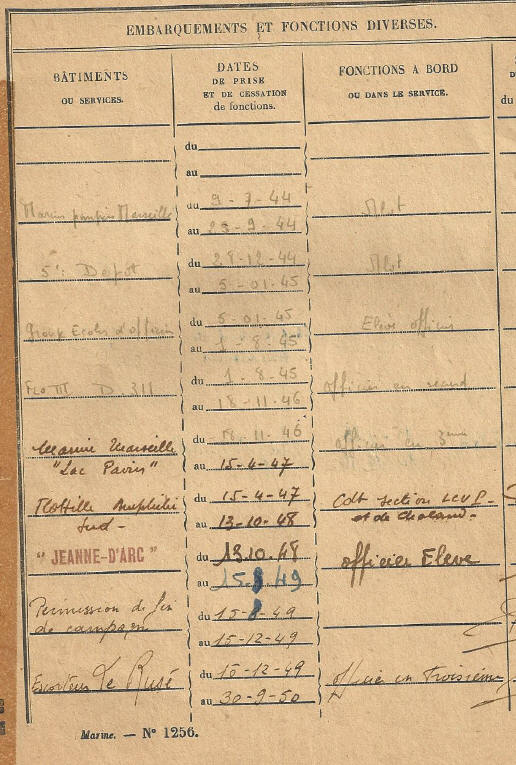 EMBARQUEMENTS ET FONCTIONS DIVERSES.
BÂTIMENTS
OU SERVICES.
DATES
DE PRISE
ET DE CESSATION
de fonctions.
FONCTIONS A BORD
OU DANS LE SERVICE.
du
du
au
Marins pompiers Marseille
du 9-7-44
au 23-9-44
Mat
5e Dépôt
du 28-12-44
au 5-01-45
Mat
Groupe Ecoles d'officiers
du 5-01-45
au 1-8-45
Elève officier
D. 311
du 1-8-45
au 18-11-46
officier en second
Marine Marseille
"Lac Pavin"
du 18-11-46
au 15-4-47
officier en 3ème
Flottille Amphibie
Sud-
du 15-4-47
au 13-10-48
Cdt Section LCVP-
et de Chaland-
"JEANNE-D'ARC"
du 13.10.48
au 15.8.49
officier Elève
Permission de fin
de campagne
du 15-8-49
au 15-12-49
Escorteur Le Rusé
du 15-12-49
au 30-9-50
officier en Troisième
Marine. — N° 1256.